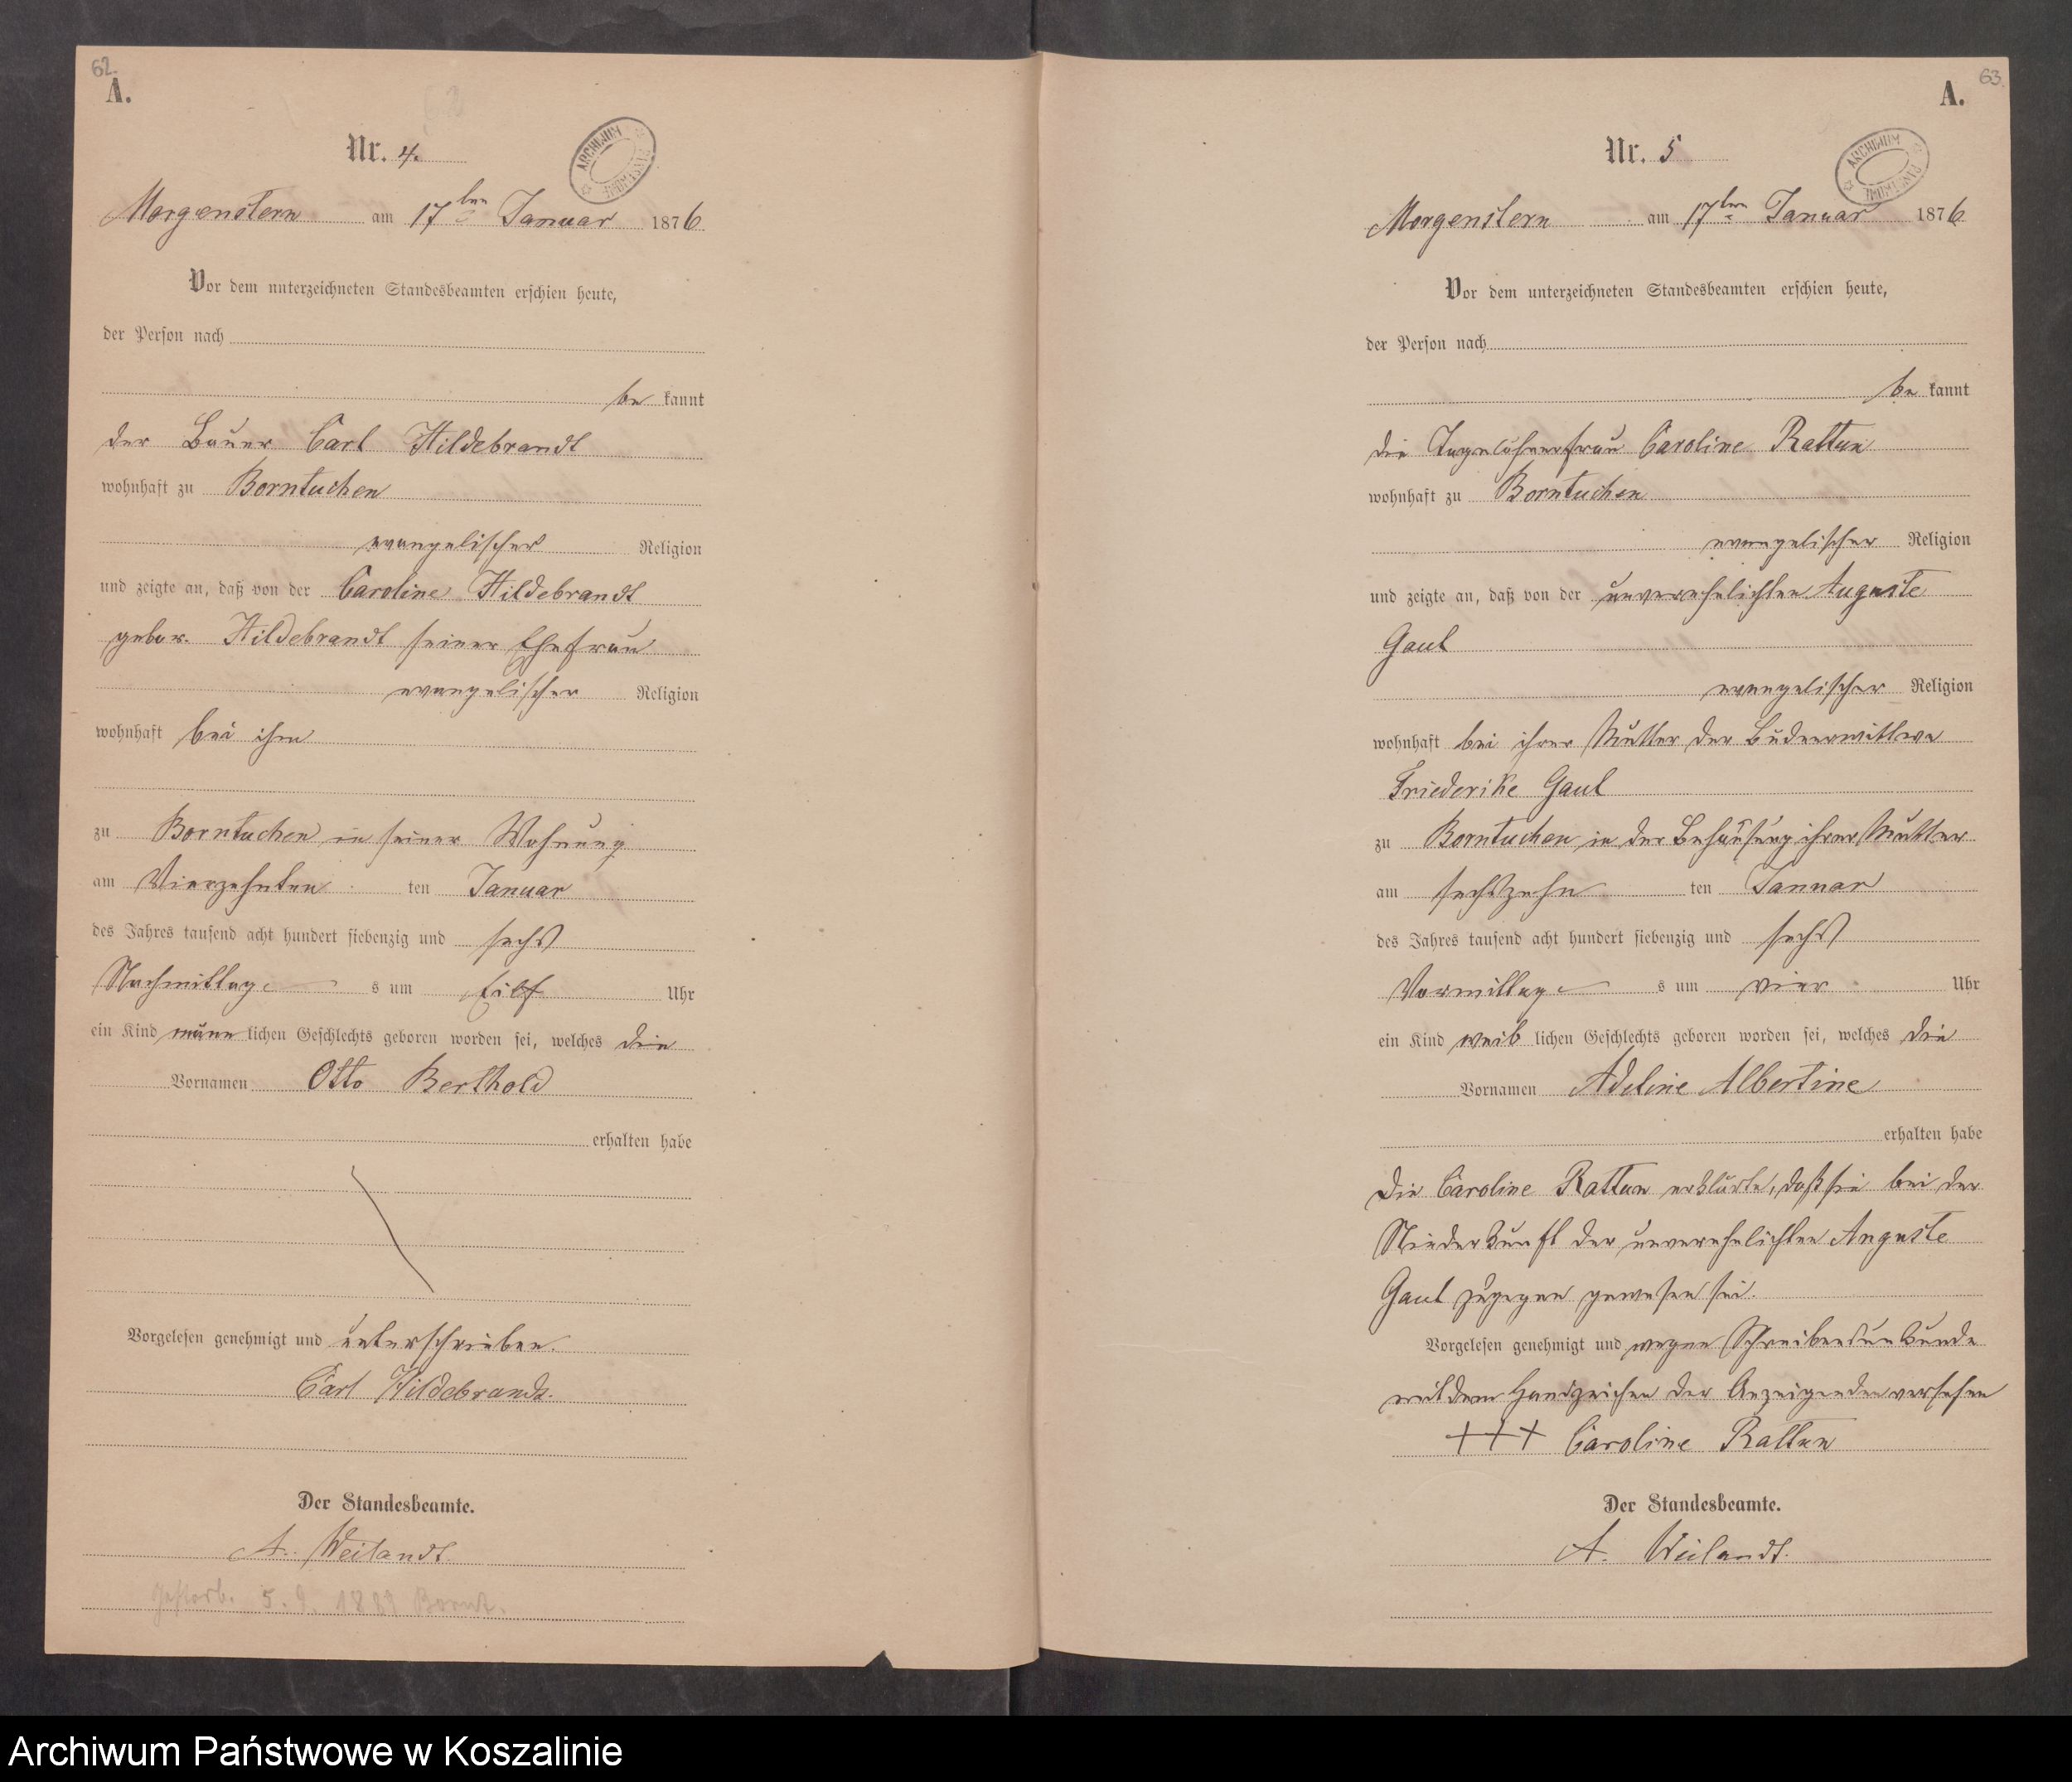 62
A.
Nr. 4.
ARCHIWUM
Morgenstern am 17ten Januar 1876
Vor dem unterzeichneten Standesbeamten erschien heute,
der Person nach
be kannt
der Bauer Carl Hildebrandt
wohnhaft zu Borntuchen
evangelischer Religion
und zeigte an, daß von der Caroline Hildebrandt
gebor. Hildebrandt seiner Ehefrau
evangelischer Religion
wohnhaft bei ihm
zu Borntuchen in seiner Wohnung
am Vierzehnten ten Januar
des Jahres tausend acht hundert siebenzig und sechs
Nachmittag s um Eilf Uhr
ein Kind männ lichen Geschlechts geboren worden sei, welches die
Vornamen Otto Berthold
erhalten habe
Vorgelesen genehmigt und unterschrieben.
Carl Hildebrandt.
Der Standesbeamte.
A. Weilandt.
Gestorb. 5. 9. Bornt.
63
A.
Nr. 5
ARCHIWUM
Morgenstern am 17ten Januar 1876
Vor dem unterzeichneten Standesbeamten erschien heute,
der Person nach
be kannt
die Tagelöhnerfrau Caroline Rattun
wohnhaft zu Borntuchen
evangelischer Religion
und zeigte an, daß von der unverehelichten Auguste
Gaul
evangelischer Religion
wohnhaft bei ihrer Mutter der Büdnerwittwe
Friederike Gaul
zu Borntuchen in der Behausung ihrer Mutter
am sechszehn ten Januar
des Jahres tausend acht hundert siebenzig und sechs
Vormittag s um vier Uhr
ein Kind weib lichen Geschlechts geboren worden sei, welches die
Vornamen Adeline Albertine
erhalten habe
Die Caroline Rattun erklärte, daß sie bei der
Niederkunft der unverehelichten Auguste
Gaul zugegen gewesen sei.
Vorgelesen genehmigt und wegen Schreibensunkunde
mit dem Handzeichen der Anzeigenden versehen
+++ Caroline Rattun
Der Standesbeamte.
A. Weilandt.
Archiwum Państwowe w Koszalinie